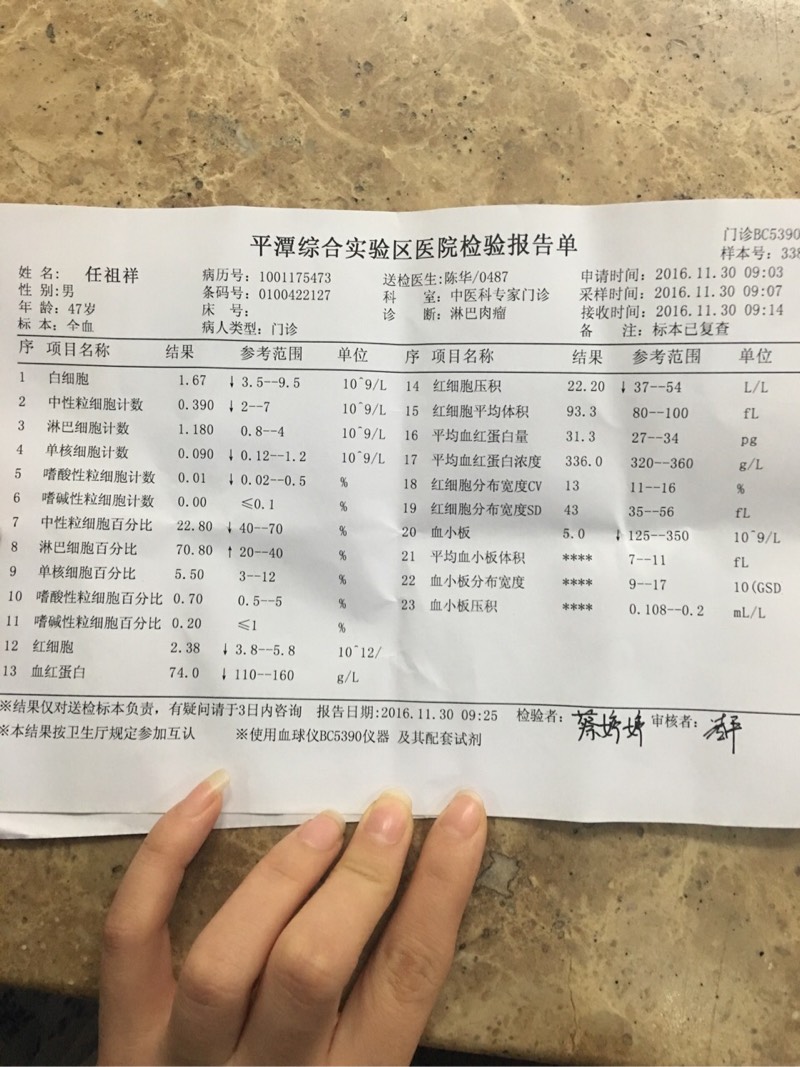 平潭综合实验区医院检验报告单
门诊BC5390
样本号：338
姓 名： 任祖祥 病历号：1001175473 送检医生：陈华/0487 申请时间：2016.11.30 09:03
性 别：男 条码号：0100422127 科 室：中医科专家门诊 采样时间：2016.11.30 09:07
年 龄：47岁 床 号： 诊 断：淋巴肉瘤 接收时间：2016.11.30 09:14
标 本：全血 病人类型：门诊 备 注：标本已复查
序 项目名称 结果 参考范围 单位 序 项目名称 结果 参考范围 单位
1 白细胞 1.67 ↓ 3.5--9.5 10^9/L 14 红细胞压积 22.20 ↓ 37--54 L/L
2 中性粒细胞计数 0.390 ↓ 2--7 10^9/L 15 红细胞平均体积 93.3 80--100 fL
3 淋巴细胞计数 1.180 0.8--4 10^9/L 16 平均血红蛋白量 31.3 27--34 pg
4 单核细胞计数 0.090 ↓ 0.12--1.2 10^9/L 17 平均血红蛋白浓度 336.0 320--360 g/L
5 嗜酸性粒细胞计数 0.01 ↓ 0.02--0.5 % 18 红细胞分布宽度CV 13 11--16 %
6 嗜碱性粒细胞计数 0.00 ≤0.1 % 19 红细胞分布宽度SD 43 35--56 fL
7 中性粒细胞百分比 22.80 ↓ 40--70 % 20 血小板 5.0 ↓ 125--350 10^9/L
8 淋巴细胞百分比 70.80 ↑ 20--40 % 21 平均血小板体积 **** 7--11 fL
9 单核细胞百分比 5.50 3--12 % 22 血小板分布宽度 **** 9--17 10(GSD
10 嗜酸性粒细胞百分比 0.70 0.5--5 % 23 血小板压积 **** 0.108--0.2 mL/L
11 嗜碱性粒细胞百分比 0.20 ≤1 %
12 红细胞 2.38 ↓ 3.8--5.8 10^12/
13 血红蛋白 74.0 ↓ 110--160 g/L
※结果仅对送检标本负责，有疑问请于3日内咨询 报告日期：2016.11.30 09:25 检验者：蔡婷婷 审核者：
※本结果按卫生厅规定参加互认 ※使用血球仪BC5390仪器 及其配套试剂